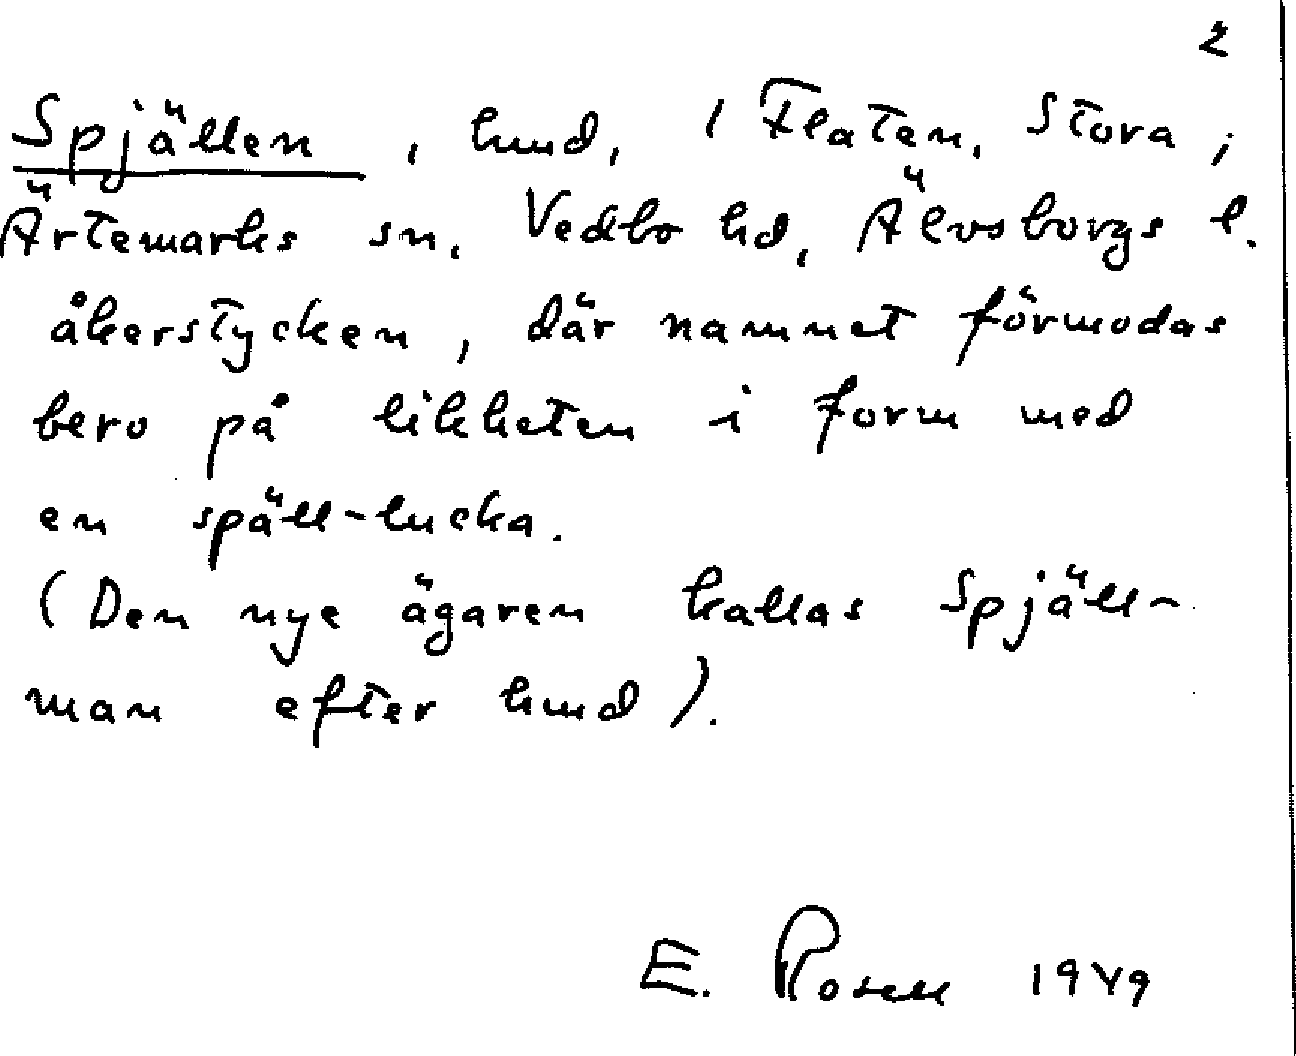 2
Spjällen, hmd, 1 Flaten, Stora,
Ärtemarks sn, Vedbo hd, Älvsborgs l.
åkerstycken, där namnet förmodas
bero på likheten i form med
en späll-lucka.
(Den nye ägaren kallas Spjäll-
man efter hmd).
E. Rosell 1949